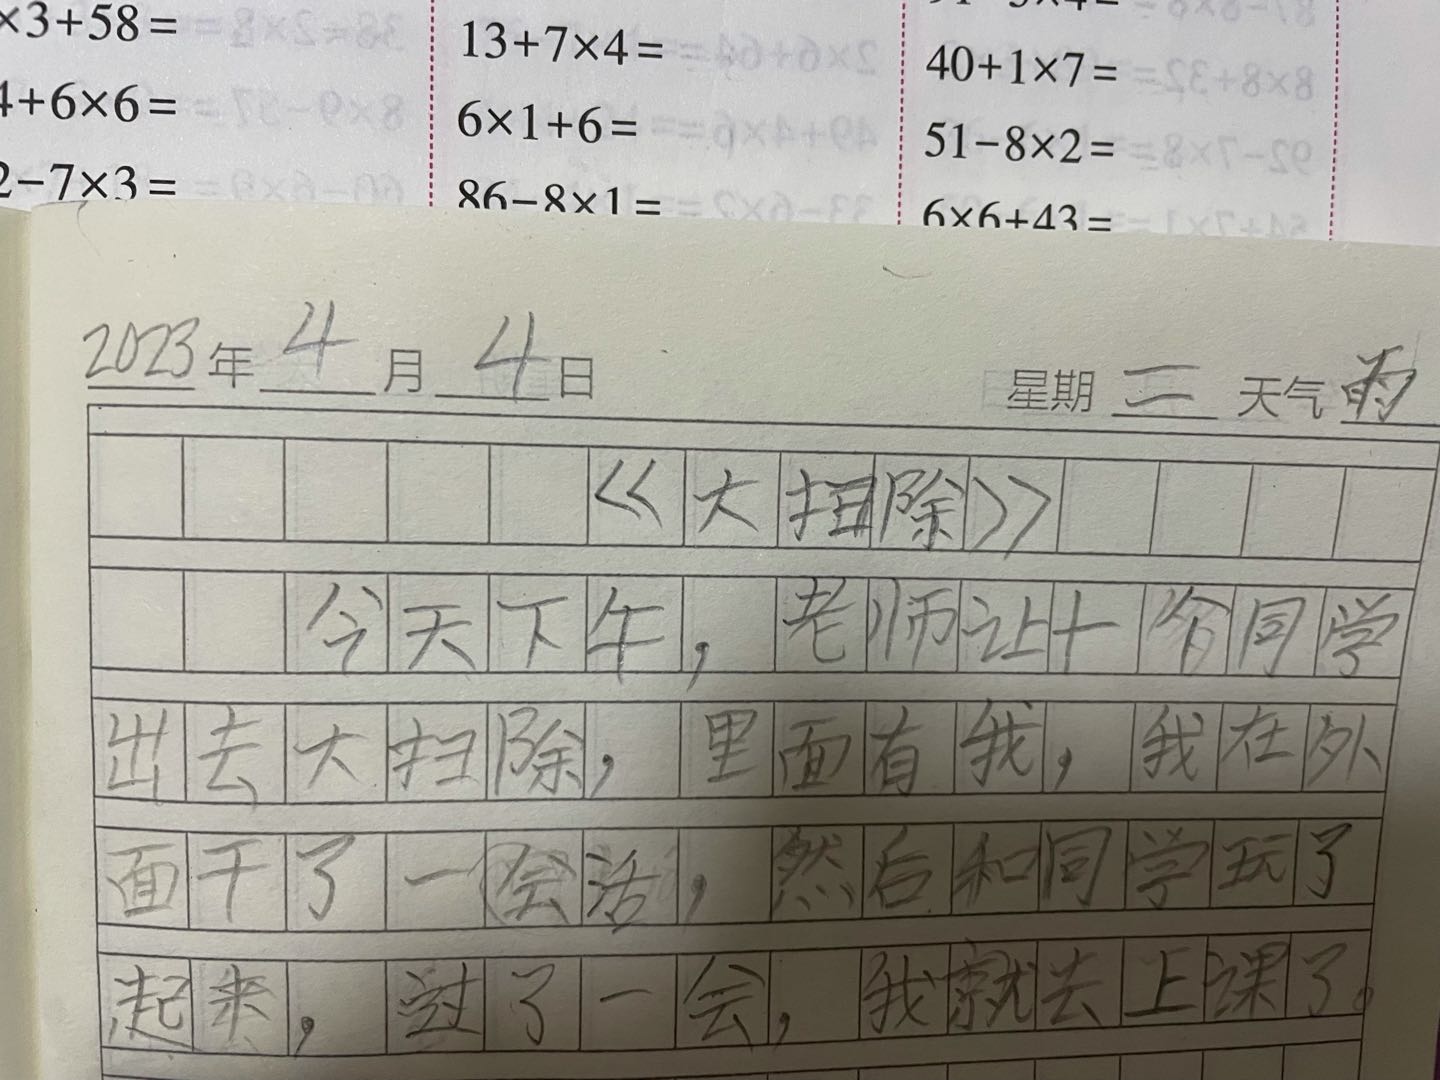 ×3+58= 13+7×4=
4+6×6= 6×1+6= 40+1×7=
2−7×3= 86−8×1= 51−8×2=
6×6+43=
2023年4月4日 星期二 天气雨
《大扫除》
今天下午，老师让十个同学
出去大扫除，里面有我，我在外
面干了一会活，然后和同学玩了
起来，过了一会，我就去上课了。